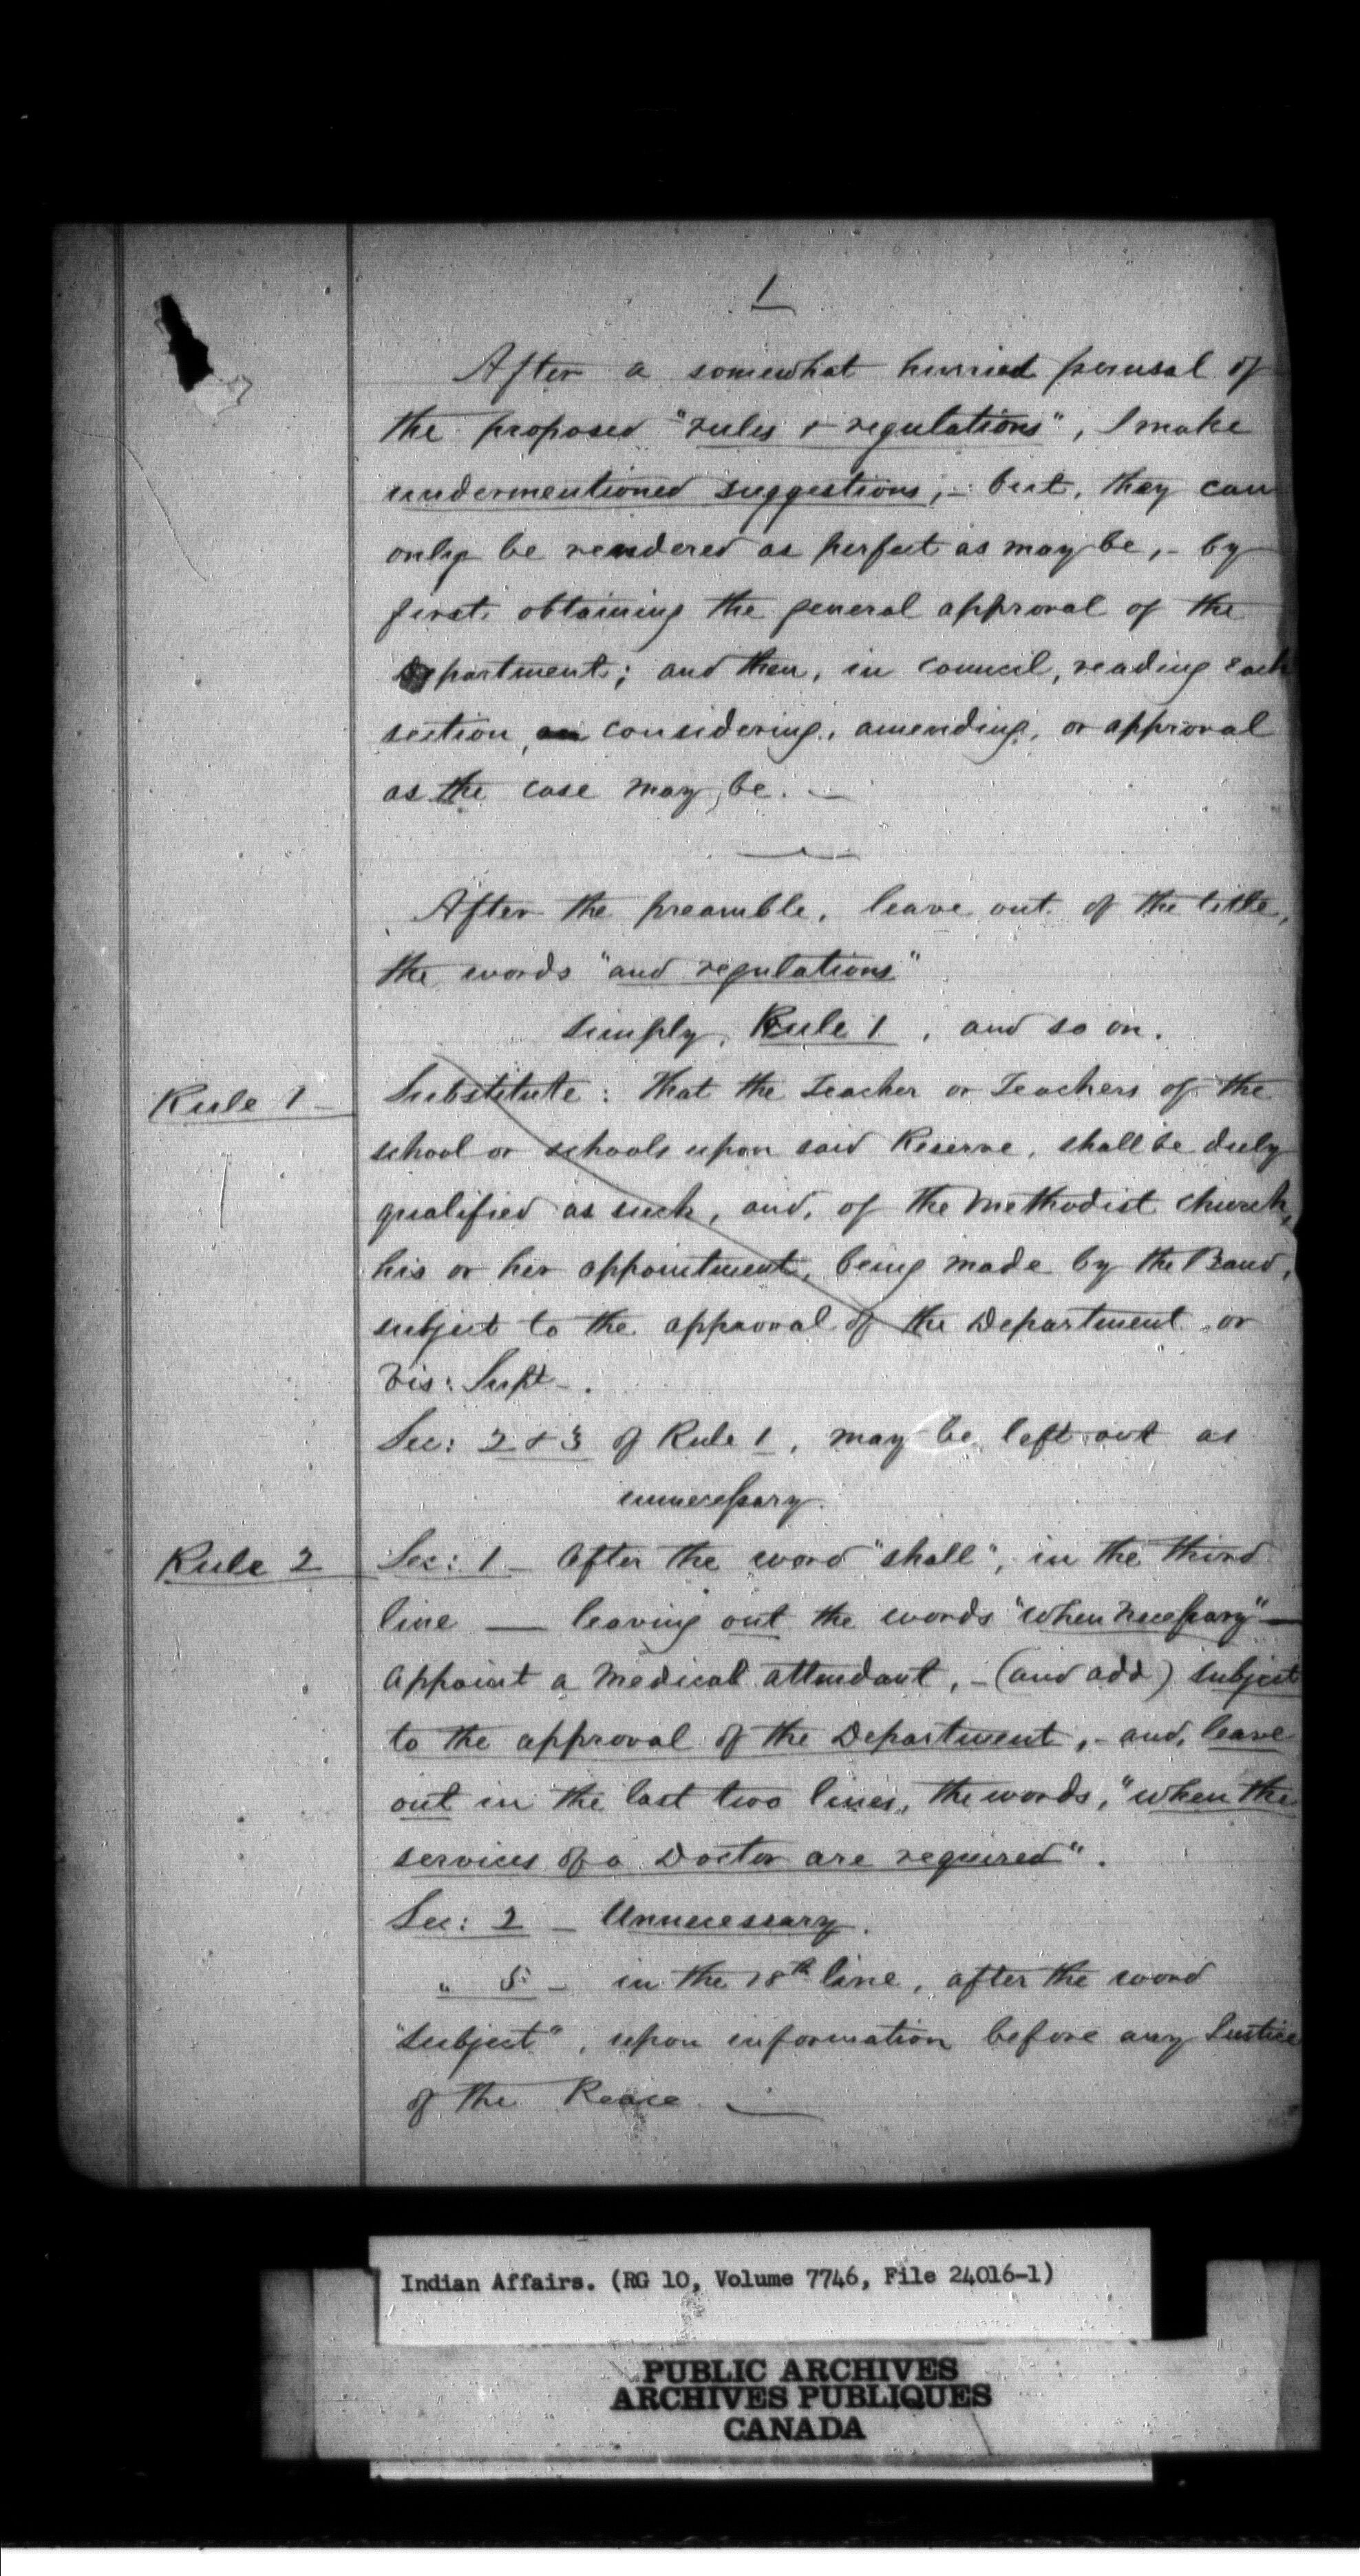 1
After a somewhat hurried perusal of
the proposed "rules & regulations", I make
undermentioned suggestions;- but, they can
only be rendered as perfect as may be,- by
first, obtaining the general approval of the
Department; and then, in council, reading each
section, considering, amending, or approval
as the case may be. —
After the preamble, leave out of the title,
the words "and regulations"
simply, Rule 1, and so on.
Rule 1 - Substitute: That the Teacher or Teachers of the
school or schools upon said Reserve, shall be duly
qualified as such, and, of the Methodist church,
his or her appointment, being made by the Band,
subject to the approval of the Department or
Vis: Supt-.
Sec: 2 & 3 of Rule 1, may be left out as
unnecessary.
Rule 2 Sec: 1 - After the word "shall", in the third
line — leaving out the words "when necessary" —
appoint a Medical attendant,- (and add) subject
to the approval of the Department,- and, leave
out in the last two lines, the words, "when the
services of a Doctor are required".
Sec: 2 - Unnecessary.
" 5 - in the 18th line, after the word
"subject", upon information before any Justice
of the Peace. —
Indian Affairs. (RG 10, Volume 7746, File 24016-1)
PUBLIC ARCHIVES
ARCHIVES PUBLIQUES
CANADA